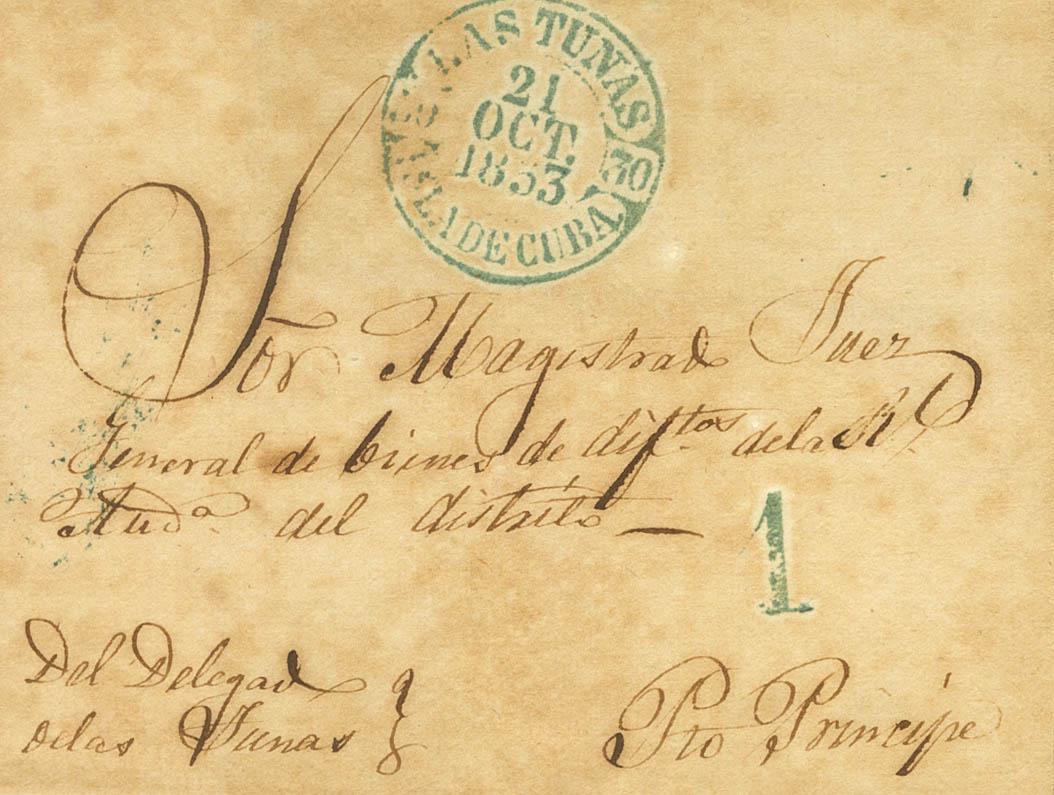 LAS TUNAS
21
OCT.
1853
30
ISLA DE CUBA
Sōr Magistrado Juez
Jeneral de bienes de dif.tos de la Rl.
Aud.a del distrito —
1
Del Delegado
de las Tunas
Pto Principe